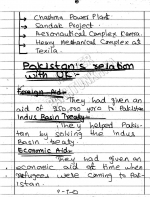 → Chashma Power Plant
→ Sandak Project
→ Aeronautical Complex Kamra
→ Heavy Mechanical Complex at
Texila.
Pakistan's relation
with UK:-
Foreign Aid-
They had given an
aid of 350,000 euro to Pakistan
Indus Basin Treaty-
They helped Pakis-
tan by solving the Indus
Basin treaty.
Economic Aid-
They had given an
economic aid at time when
refugees were coming to Pak-
istan.
P-T-O